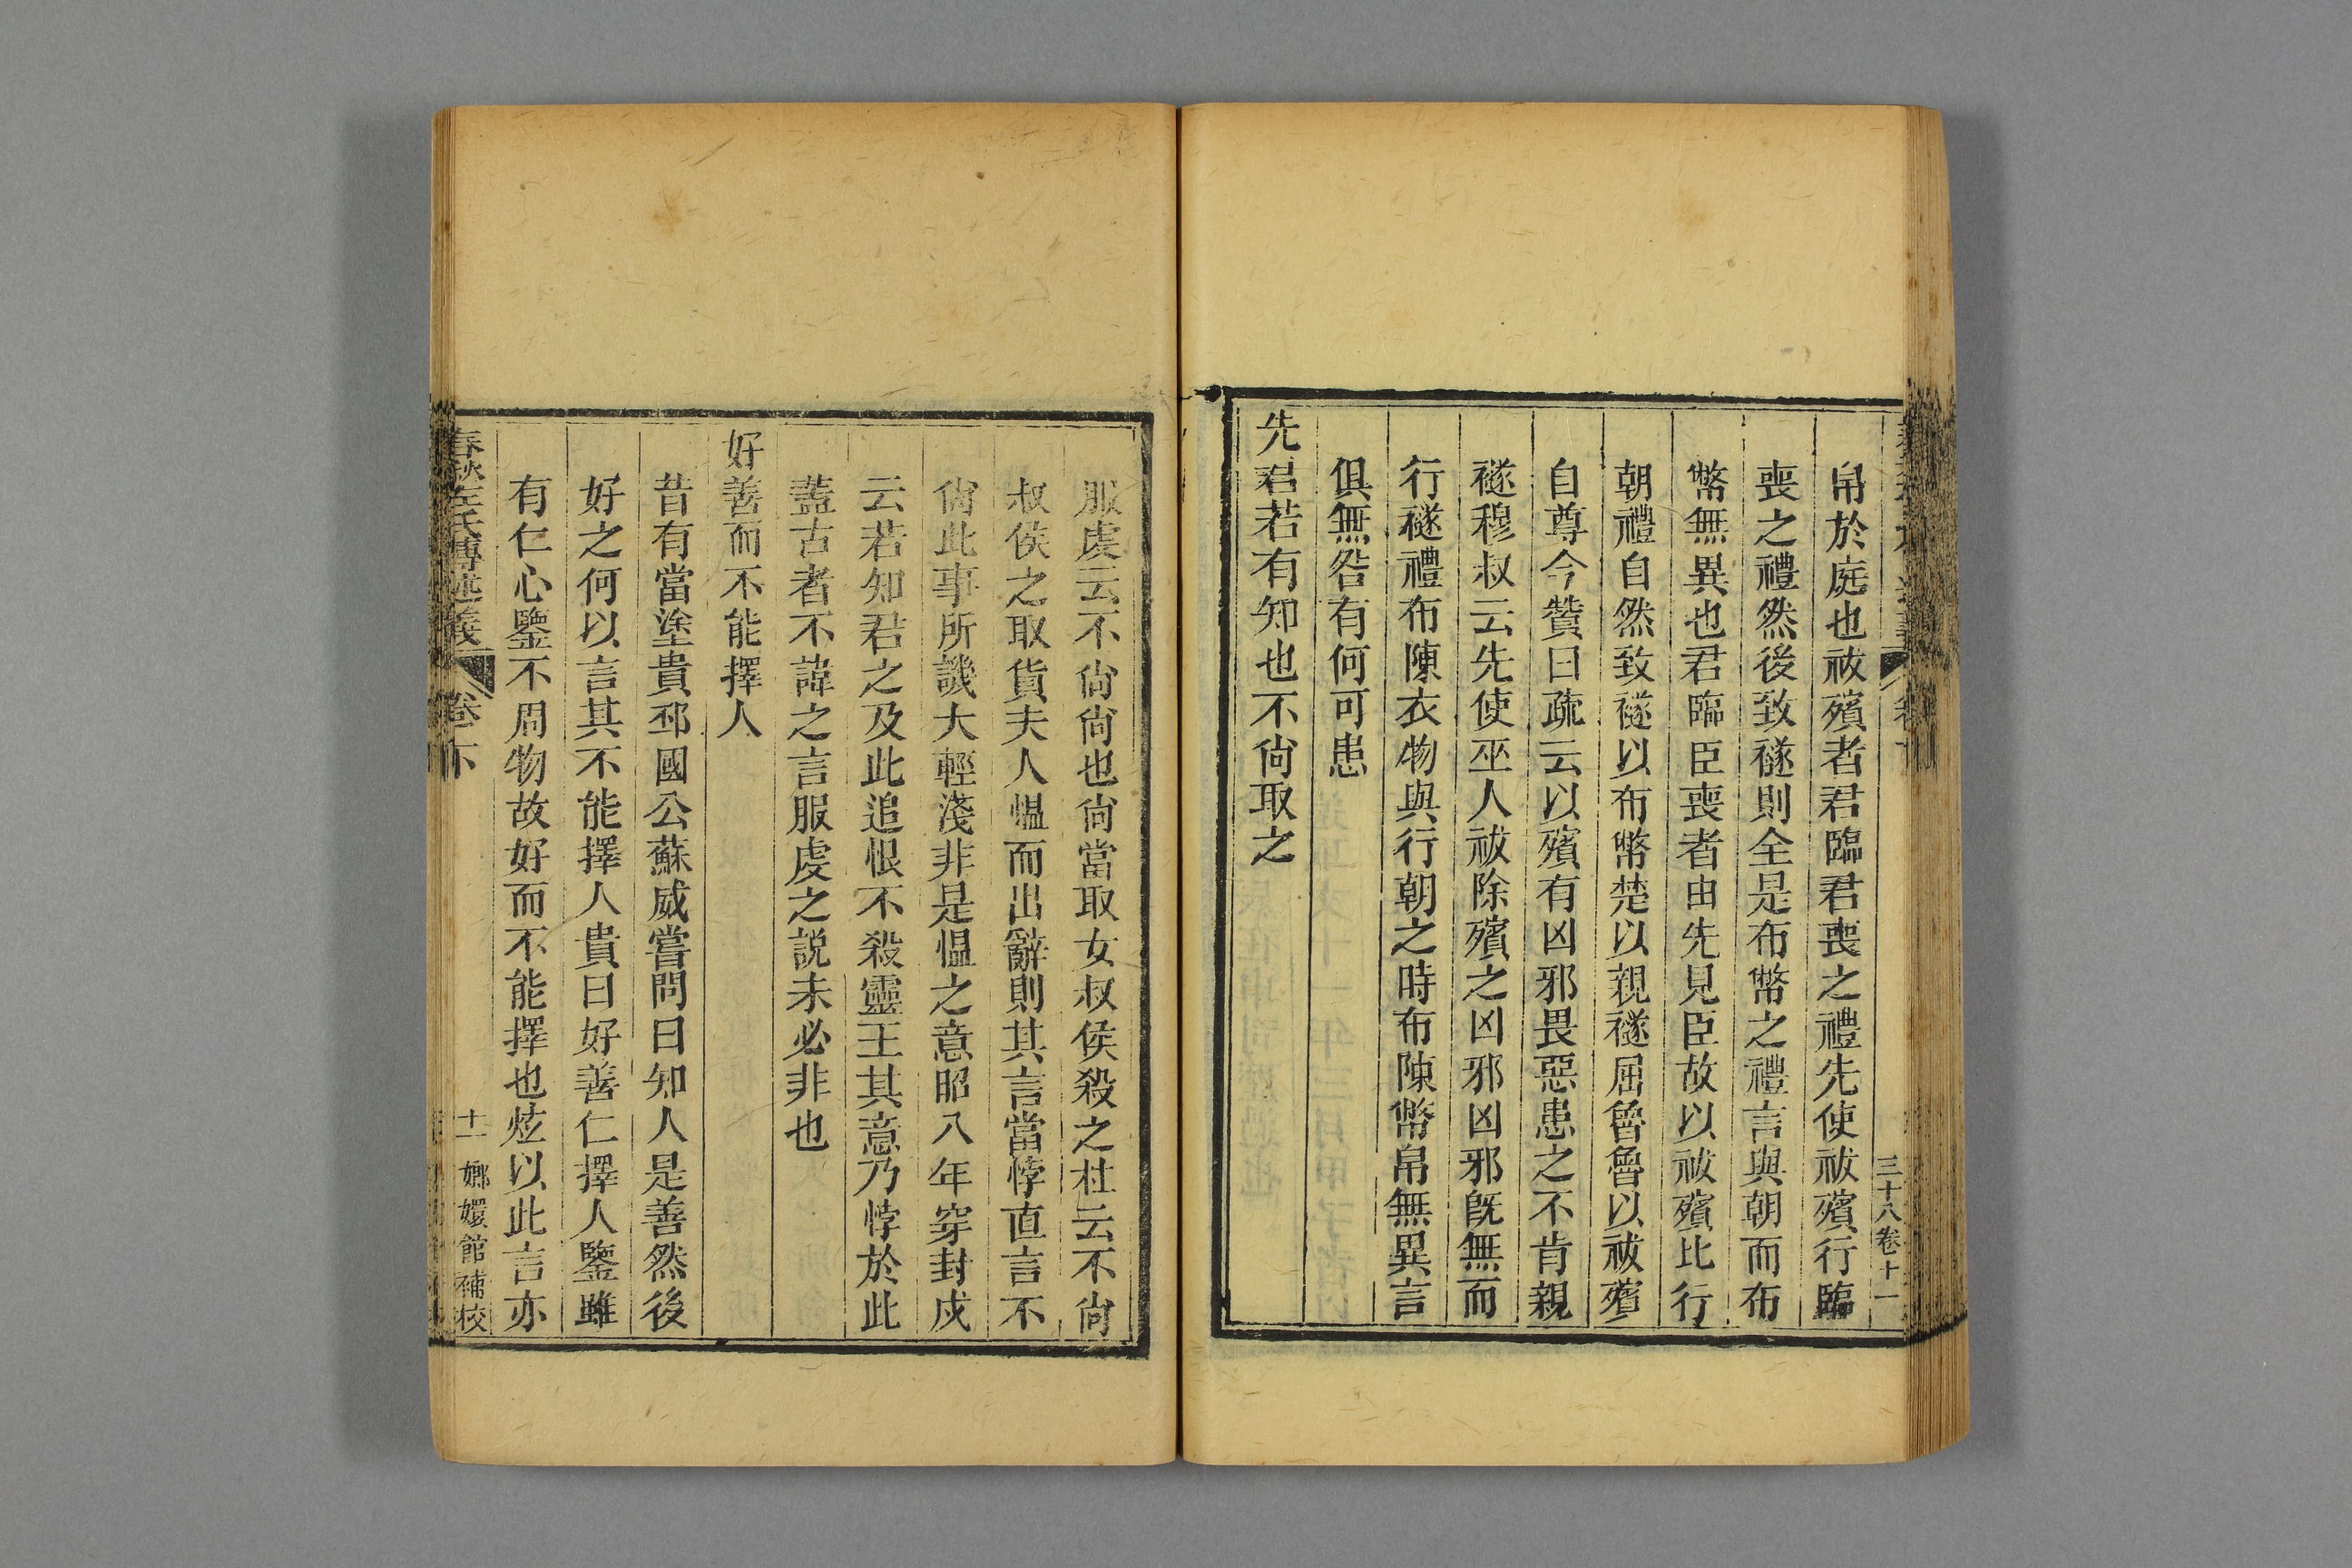 三十八卷十一
帛於庭也祓殯者君臨君喪之禮先使祓殯行臨
喪之禮然後致襚則全是布幣之禮言與朝而布
幣無異也君臨臣喪者由先見臣故以祓殯比行
朝禮自然致襚以布幣楚以親襚屈魯魯以祓殯
自尊今贊曰疏云以殯有凶邪畏惡患之不肯親
襚穆叔云先使巫人祓除殯之凶邪凶邪旣無而
行襚禮布陳衣物與行朝之時布陳幣帛無異言
俱無咎有何可患
先君若有知也不尙取之
服虔云不尙尙也尙當取女叔侯殺之杜云不尙
叔侯之取貨夫人慍而出辭則其言當悖直言不
尙此事所譏大輕淺非是慍之意昭八年穿封戍
云若知君之及此追恨不殺靈王其意乃悖於此
葢古者不諱之言服虔之説未必非也
好善而不能擇人
昔有當塗貴邳國公蘇威嘗問曰知人是善然後
好之何以言其不能擇人貴曰好善仁擇人鑒雖
有仁心鑒不周物故好而不能擇也炫以此言亦
春秋左氏傳述義 卷下
十一 嫏嬛館補校